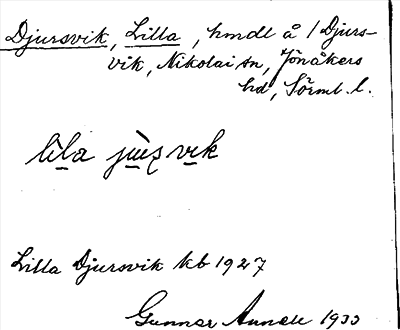 Djursvik, Lilla, hmdl å / Djurs-
vik, Nikolai sn, Jönåkers
hd, Sörml. l.
lila
Lilla Djursvik kb 1927
Gunnar 1933